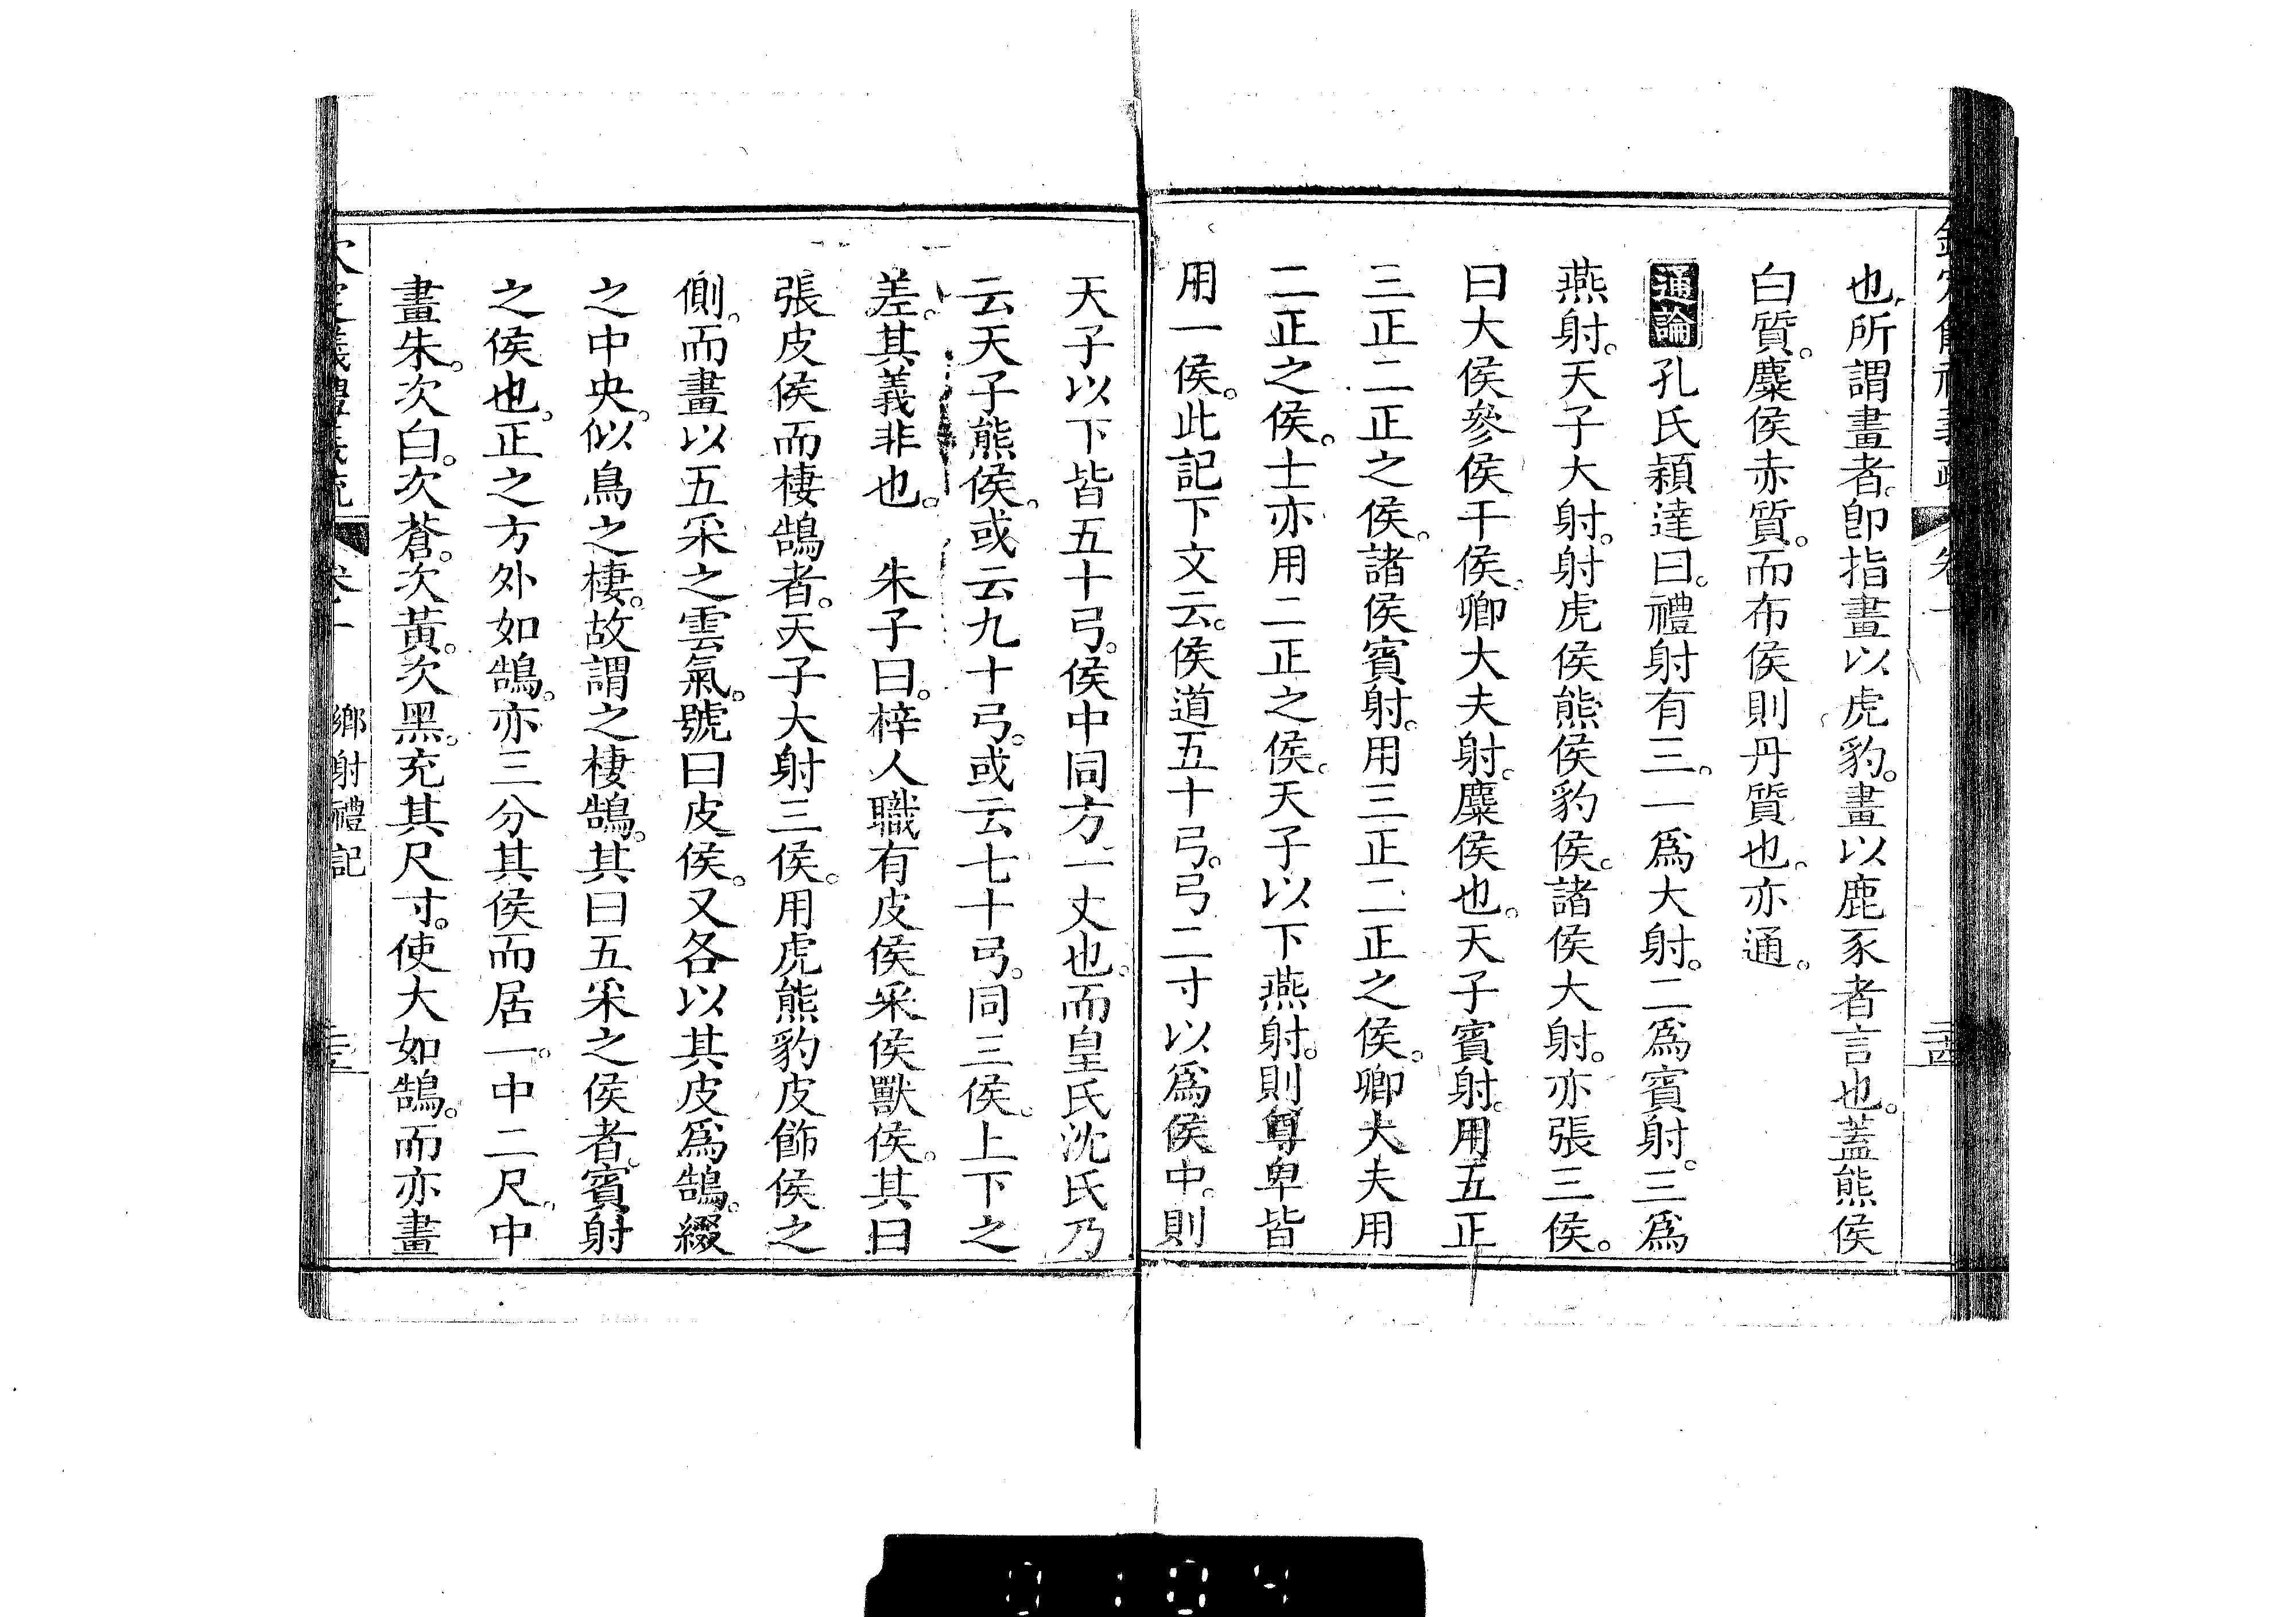 也所謂畫者卽指畫以虎豹。畫以鹿豕者言也。蓋熊侯
白質。麋侯赤質。而布侯則丹質也。亦通。
通論孔氏穎達曰。禮射有三。一爲大射。二爲賓射。三爲
燕射。天子大射。射虎侯熊侯豹侯。諸侯大射。亦張三侯。
曰大侯參侯干侯。卿大夫射。麋侯也。天子賓射。用五正
三正二正之侯。諸侯賓射。用三正二正之侯。卿大夫用
二正之侯。士亦用二正之侯。天子以下燕射。則尊卑皆
用一侯。此記下文云。侯道五十弓。弓二寸以爲侯中。則
天子以下皆五十弓。侯中同方一丈也。而皇氏沈氏乃
云天子熊侯。或云九十弓。或云七十弓。同三侯。上下之
差。其義非也。 朱子曰。梓人職有皮侯采侯獸侯。其曰
張皮侯而棲鵠者。天子大射三侯。用虎熊豹皮飾侯之
側。而畫以五采之雲氣。號曰皮侯。又各以其皮爲鵠。綴
之中央。似鳥之棲。故謂之棲鵠。其曰五采之侯者。賓射
之侯也。正之方外如鵠。亦三分其侯而居一。中二尺。中
畫朱。次白。次蒼。次黃。次黑。充其尺寸。使大如鵠。而亦畫
鄉射禮記